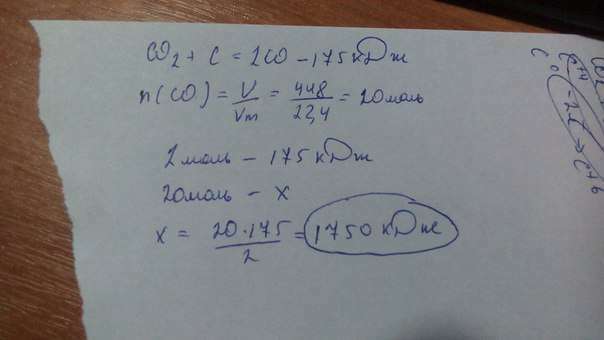 CO₂ + C = 2CO – 175 кДж
n(CO) = V/Vm = 448/22,4 = 20 моль
2 моль – 175 кДж
20 моль – x
x = 20·175/2 = 1750 кДж